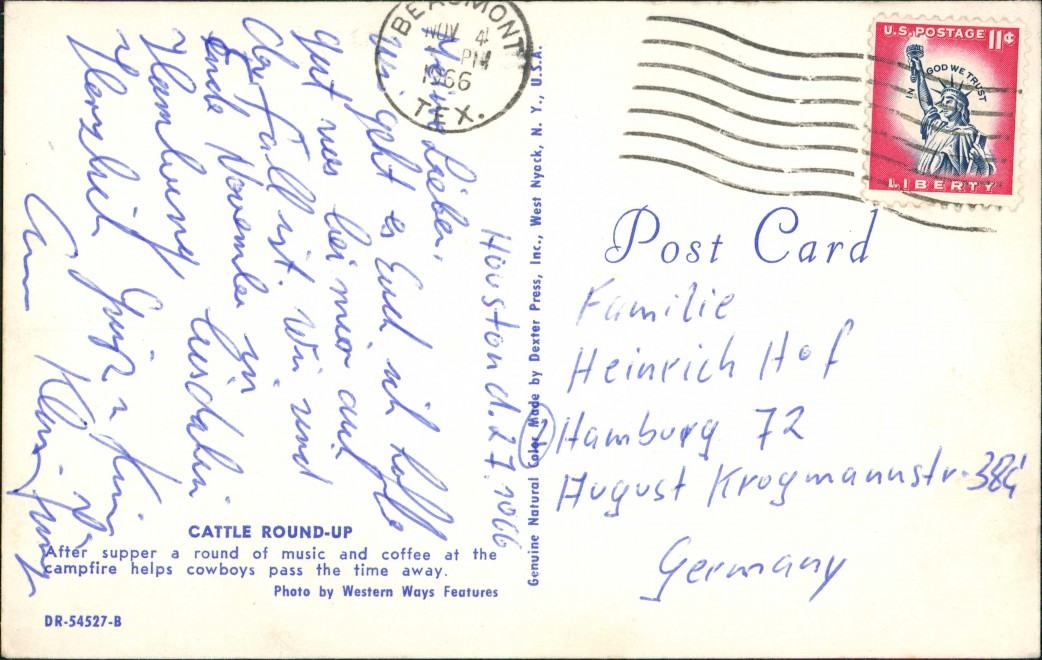 Houston d. 27. 1066
Meine Lieben,
wie geht es Euch ich hoffe
gut was bei mir auch
der Fall ist. Wir sind
Ende November in
Hamburg bis dahin
Herzlich Grüße
BEAUMONT
NOV 4
PM
1966
TEX.
U.S. POSTAGE 11¢
IN GOD WE TRUST
LIBERTY
Post Card
Familie
Heinrich Hof
Hamburg 72
August Krogmannstr.
Germany
Genuine Natural Color Made by Dexter Press, Inc., West Nyack, N. Y., U.S.A.
CATTLE ROUND-UP
After supper a round of music and coffee at the
campfire helps cowboys pass the time away.
Photo by Western Ways Features
DR-54527-B